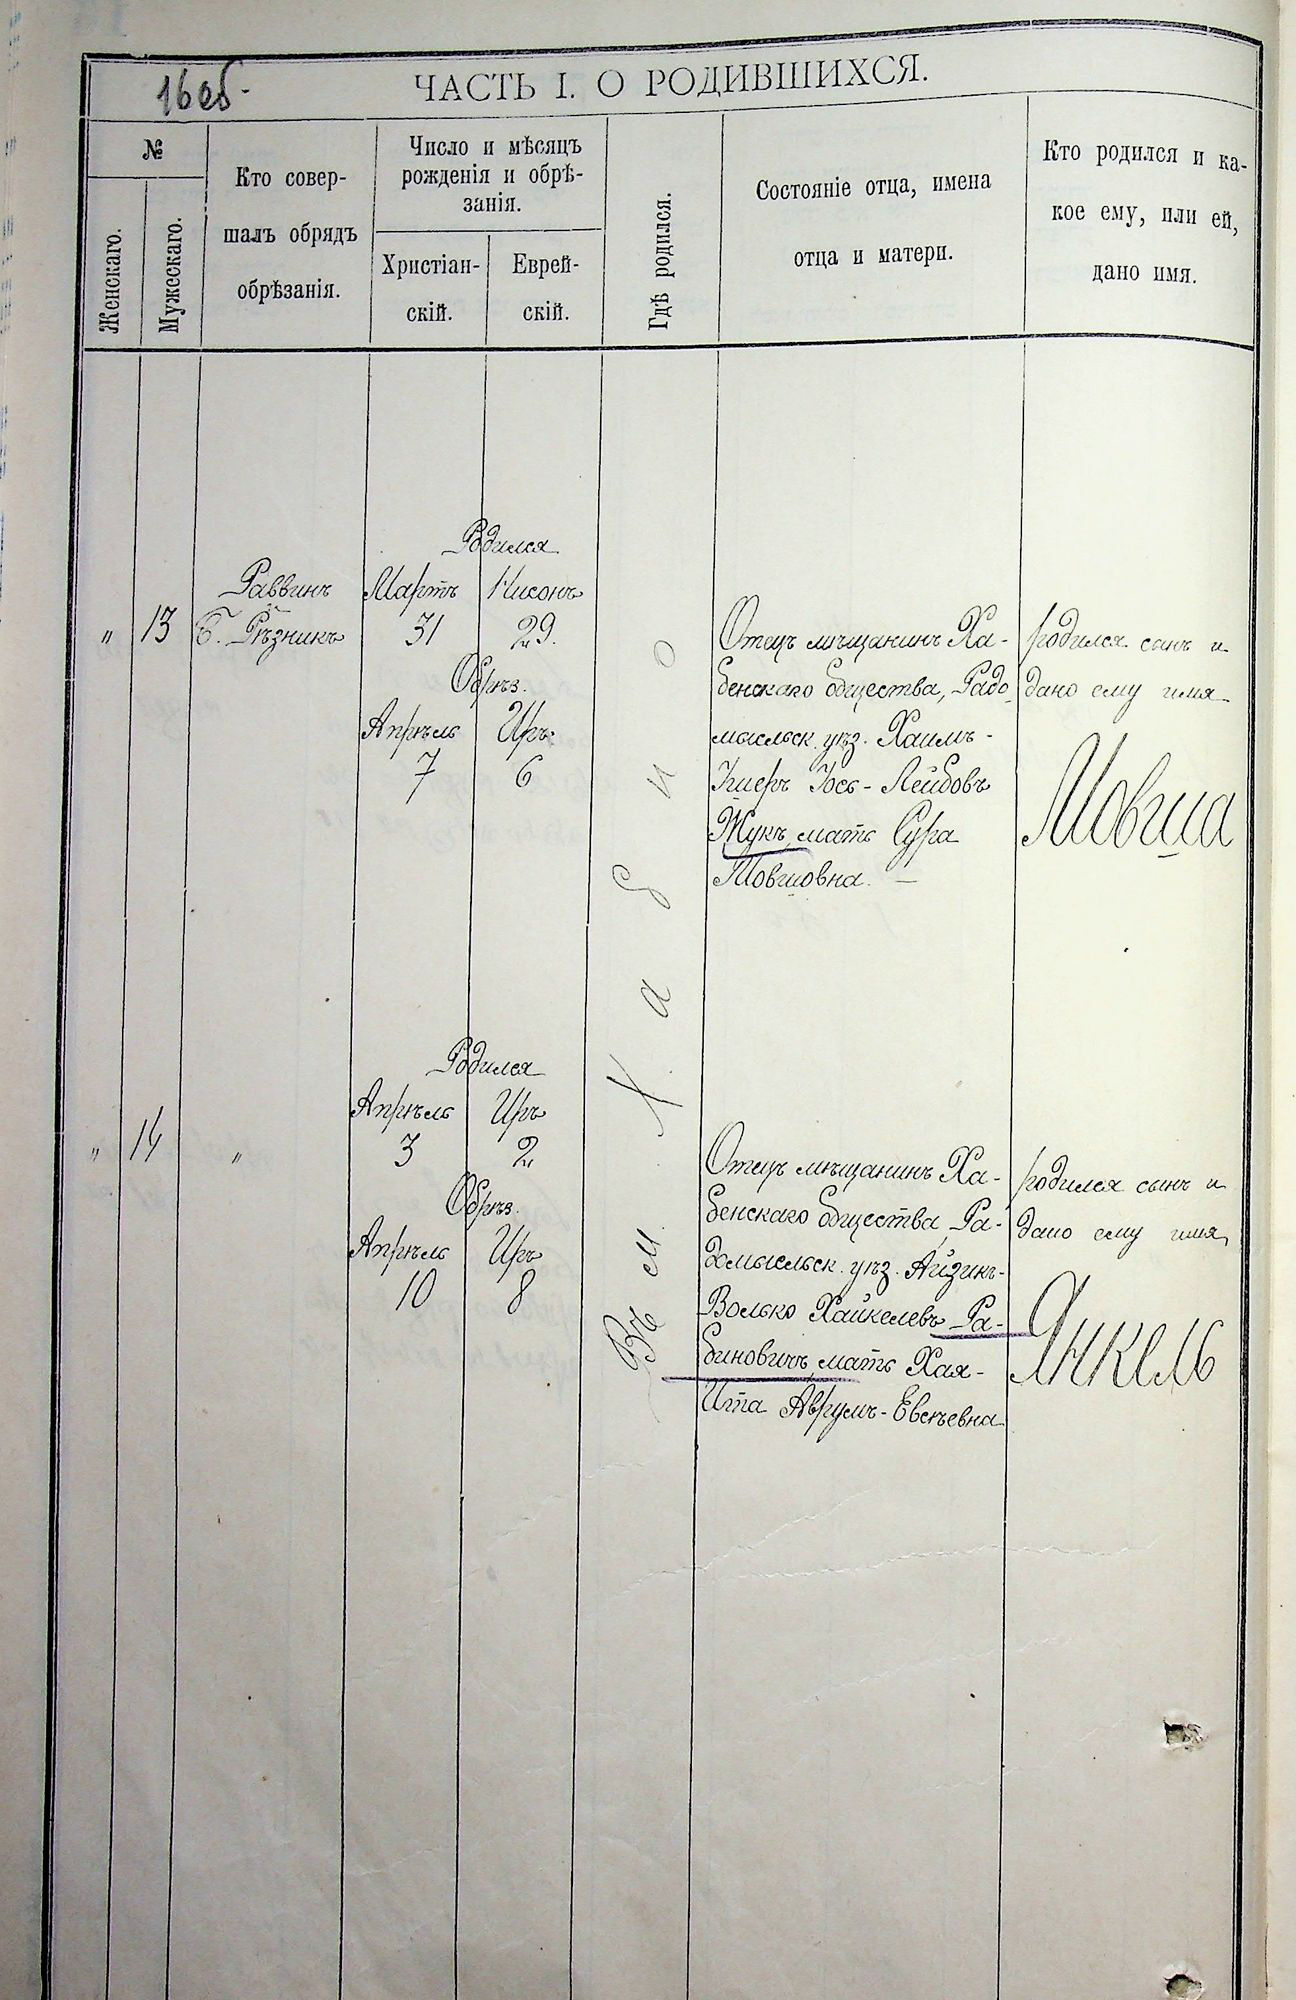 16 об.
ЧАСТЬ I. О РОДИВШИХСЯ.
№
Женскаго.
Мужескаго.
Кто совер-
шалъ обрядъ
обрѣзанія.
Число и мѣсяцъ
рожденія и обрѣ-
занія.
Христіан-
скій.
Еврей-
скій.
Гдѣ родился.
Состояніе отца, имена
отца и матери.
Кто родился и ка-
кое ему, или ей,
дано имя.
"
13
Раввинъ
Б. Рѣзникъ
Родился
Мартъ Нисонъ
31 29.
Обрѣз.
Апрѣль Иръ.
7 6
Въ м. Хабно
Отецъ мѣщанинъ Ха-
бенскаго общества, Радо
мысльск. уѣз. Хаимъ-
Юсь-Лейбовъ
Жукъ, мать Сура
Мовшовна. —
родился сынъ и
дано ему имя
Мовша
"
14
"
Родился
Апрѣль Иръ
3 2
Обрѣз.
Апрѣль Иръ
10 8
Отецъ мѣщанинъ Ха-
бенскаго общества, Ра-
домысльск. уѣз. Айзикъ-
Волько Хайкелевъ Ра-
биновичъ, мать Хая-
Ита Аврумъ-Евсѣевна
родился сынъ и
дано ему имя
Янкель